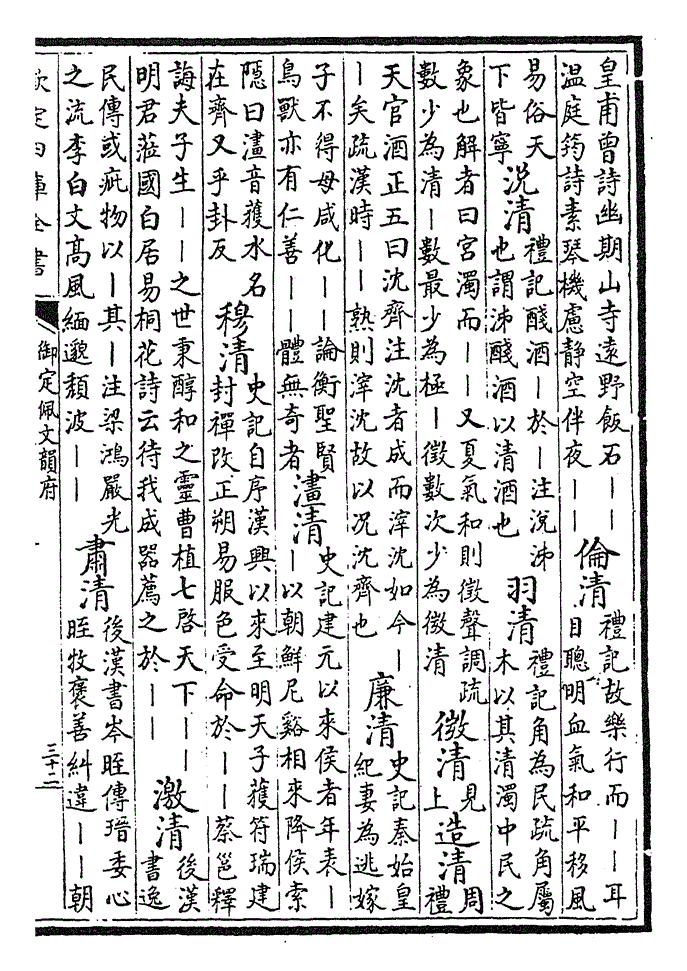 皇甫曾詩幽期山寺遠野飯石丨丨
溫庭筠詩素琴機慮静空伴夜丨丨
倫清
禮記故樂行而丨丨耳
目聰明血氣和平移風
易俗天
下皆寧
涚清
禮記醆酒丨於丨注涚沛
也謂沛醆酒以清酒也
羽清
禮記角為民疏角屬
木以其清濁中民之
象也解者曰宮濁而丨丨又夏氣和則徵聲調疏
數少為清丨數最少為極丨徵數次少為徵清
徵清
見
上
造清
周
禮
天官酒正五曰沈齊注沈者成而滓沈如今丨
丨矣疏漢時丨丨熟則滓沈故以况沈齊也
廉清
史記秦始皇
紀妻為逃嫁
子不得母咸化丨丨論衡聖賢
鳥獸亦有仁善丨丨體無奇者
澅清
史記建元以來侯者年表丨
丨以朝鮮尼谿相來降侯索
隱曰澅音獲水名
在齊又乎卦反
穆清
史記自序漢興以來至明天子獲符瑞建
封禪改正朔易服色受命於丨丨蔡邕釋
誨夫子生丨丨之世秉醇和之靈曹植七啓天下丨丨
明君蒞國白居易桐花詩云待我成器薦之於丨丨
激清
後漢
書逸
民傳或疵物以丨其丨注梁鴻嚴光
之流李白文髙風緬邈頽波丨丨
肅清
後漢書岑晊傳瑨委心
晊牧褒善糾違丨丨朝
欽定四庫全書
御定佩文韻府
三十二